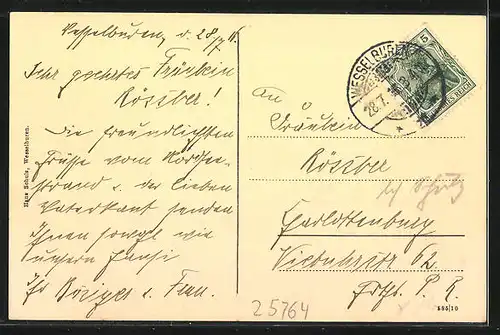 Wesselburen, d. 28/7 11.
Sehr geehrtes Fräulein
Rössber!
Die freundlichsten
Grüsse vom Nordsee-
strand u. der lieben
Waterkant senden
Ihnen sowohl wie
unsern Hansi
Ihr u. Frau.
Hans Schulz, Wesselburen.
WESSELBUREN
28.7.
5
DEUTSCHES REICH
An
Fräulein
Rössber
bei Schulz
Charlottenburg
62
25764